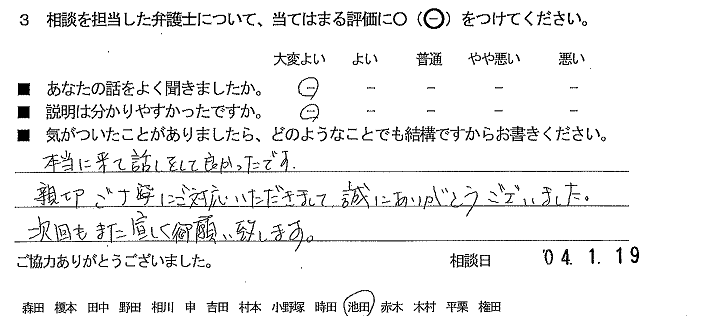 3 相談を担当した弁護士について、当てはまる評価に○（㊀）をつけてください。
大変よい よい 普通 やや悪い 悪い
■ あなたの話をよく聞きましたか。 － － － － －
■ 説明は分かりやすかったですか。 － － － － －
■ 気がついたことがありましたら、どのようなことでも結構ですからお書きください。
本当に来て話しをして良かったです.
親切 ご丁寧にご対応いただきまして 誠にありがとうございました。
次回もまた宜しく御願い致します。
ご協力ありがとうございました。 相談日 '04. 1. 19
森田 榎本 田中 野田 相川 申 吉田 村本 小野塚 時田 池田 赤木 木村 平栗 権田